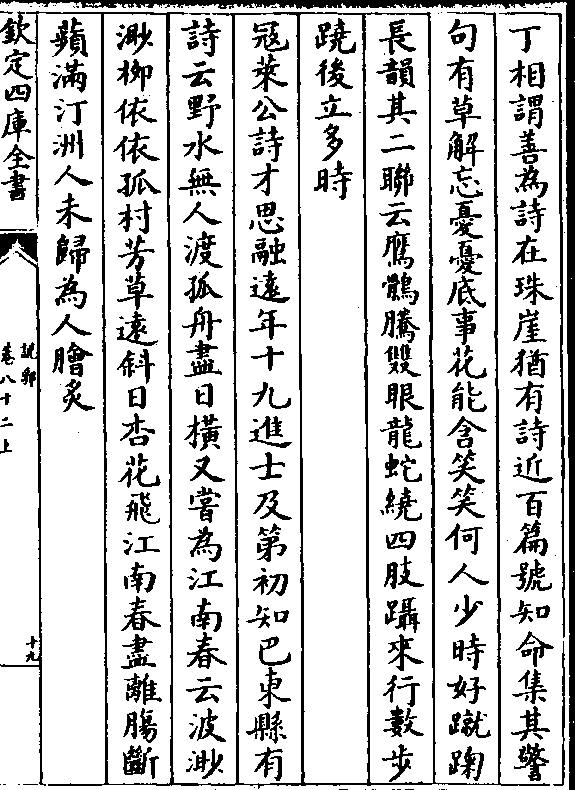 丁相謂善為詩在珠崖猶有詩近百篇號知命集其警
句有草解忘憂憂底事花能含笑笑何人少時好蹴踘
長韻其二聯云鷹鶻騰雙眼龍蛇繞四肢躡來行數步
蹺後立多時
冦萊公詩才思融遠年十九進士及第初知巴東縣有
詩云野水無人渡孤舟盡日橫又嘗為江南春云波渺
渺栁依依孤村芳草遠斜日杏花飛江南春盡離腸斷
蘋滿汀洲人未歸為人膾炙
欽定四庫全書
說郛
卷八十二上
十九